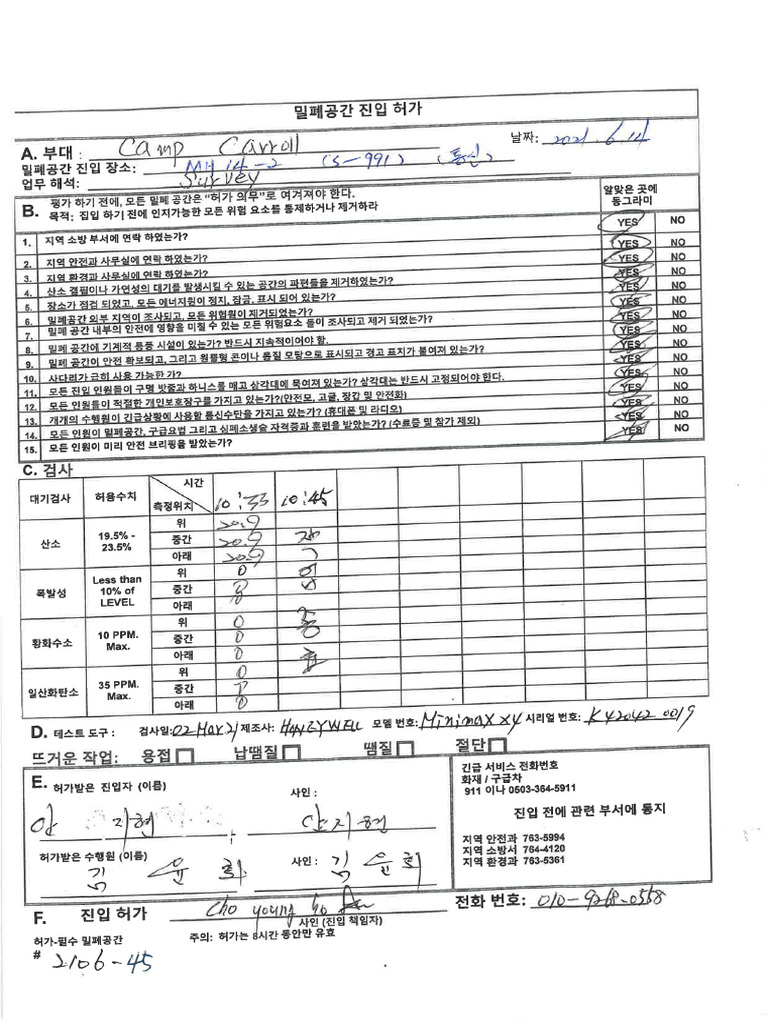 밀폐공간 진입 허가
A. 부대 : Camp Carroll 날짜: 2021. 6. 14
밀폐공간 진입 장소: MH 14-2 (S-991) (통신)
업무 해석: Survey
B. 평가 하기 전에, 모든 밀폐 공간은 "허가 의무"로 여겨져야 한다. 알맞은 곳에
목적: 집입 하기 전에 인지가능한 모든 위험 요소를 통제하거나 제거하라 동그라미
1. 지역 소방 부서에 연락 하였는가? YES NO
2. 지역 안전과 사무실에 연락 하였는가? YES NO
3. 지역 환경과 사무실에 연락 하였는가? YES NO
4. 산소 결핍이나 가연성의 대기를 발생시킬 수 있는 공간의 파편들을 제거하였는가? YES NO
5. 장소가 점검 되었고, 모든 에너지원이 정지, 잠금, 표시 되어 있는가? YES NO
6. 밀폐공간 외부 지역이 조사되고, 모든 위험원이 제거되었는가? YES NO
7. 밀폐 공간 내부의 안전에 영향을 미칠 수 있는 모든 위험요소 들이 조사되고 제거 되었는가? YES NO
8. 밀폐 공간에 기계적 통풍 시설이 있는가? 반드시 지속적이어야 함. YES NO
9. 밀폐 공간이 안전 확보되고, 그리고 원뿔형 콘이나 품질 모탕으로 표시되고 경고 표지가 붙여져 있는가? YES NO
10. 사다리가 급히 사용 가능한 가? YES NO
11. 모든 진입 인원들이 구명 밧줄과 하니스를 매고 삼각대에 묶여져 있는가? 삼각대는 반드시 고정되어야 한다. YES NO
12. 모든 인원들이 적절한 개인보호장구를 가지고 있는가?(안전모, 고글, 장갑 및 안전화) YES NO
13. 개개의 수행원이 긴급상황에 사용할 통신수단을 가지고 있는가? (휴대폰 및 라디오) YES NO
14. 모든 인원이 밀폐공간, 구급요법 그리고 심폐소생술 자격증과 훈련을 받았는가? (수료증 및 참가 제외) YES NO
15. 모든 인원이 미리 안전 브리핑을 받았는가?
C. 검사
대기검사 허용수치 시간 측정위치 10:33 10:45
산소 19.5% - 23.5% 위 20.9
중간 20.9
아래 20.9
폭발성 Less than 10% of LEVEL 위 0
중간 0
아래 0
황화수소 10 PPM. Max. 위 0
중간 0
아래 0
일산화탄소 35 PPM. Max. 위 0
중간 0
아래 0
D. 테스트 도구 : 검사일: 02 Mar 21 제조사: HONEYWELL 모델 번호: Minimax x4 시리얼 번호: KY2042 0019
뜨거운 작업: 용접 납땜질 땜질 절단
E. 허가받은 진입자 (이름) 사인 :
안 지현 안지현
허가받은 수행원 (이름) 사인 :
김 윤희 김 윤희
긴급 서비스 전화번호
화재 / 구급차
911 이나 0503-364-5911
진입 전에 관련 부서에 통지
지역 안전과 763-5994
지역 소방서 764-4120
지역 환경과 763-5361
F. 진입 허가 Cho young ho 전화 번호: 010-9268-0568
사인 (진입 책임자)
허가-필수 밀폐공간 주의: 허가는 8시간 동안만 유효
# 2106-45